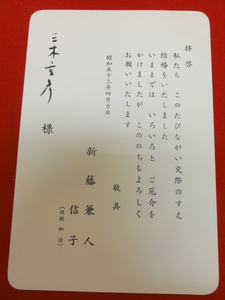 拝啓
私たち このたびながい交際のすえ
結婚をいたしました
いままでは いろいろと ご厄介を
かけましたが このゝちもよろしく
お願いいたします
敬具
昭和五十三年四月吉日
新藤兼人
信子
(旧姓 加治)
様